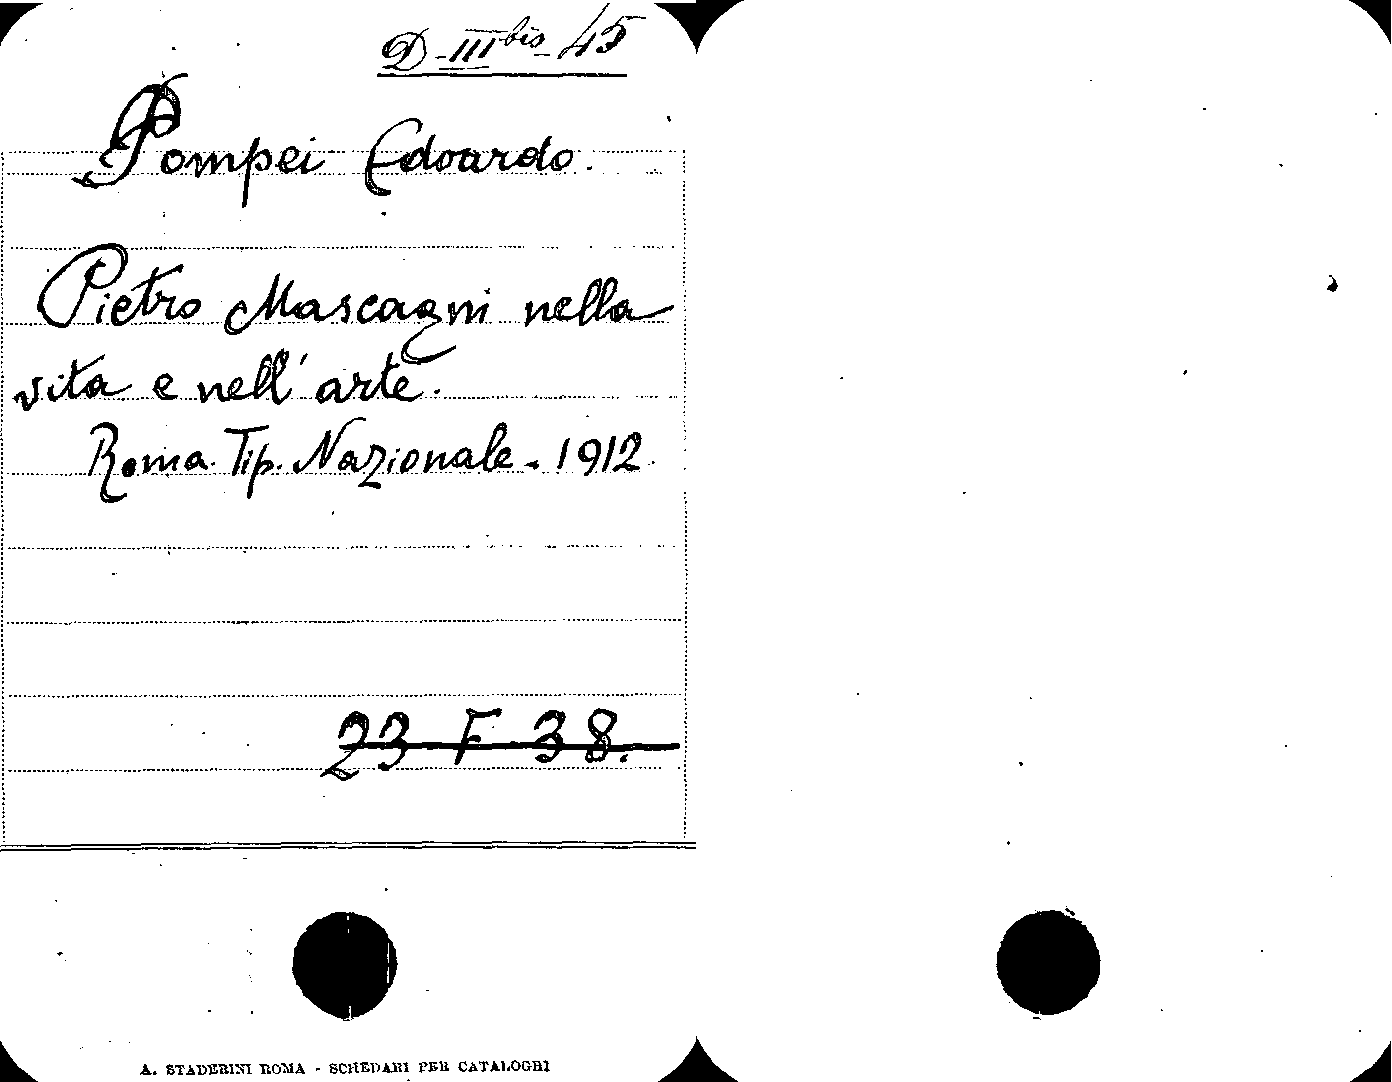 D-III bis-45
Pompei Edoardo.
Pietro Mascagni nella
vita e nell'arte.
Roma. Tip. Nazionale - 1912
23 F 38.
A. STADERINI ROMA - SCHEDARI PER CATALOGHI